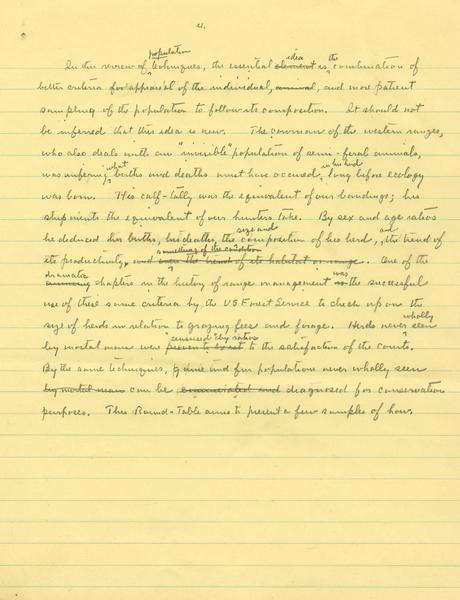 4.
In this review of population techniques, the essential element idea is the combination of
better criteria for appraisal of the individual, animal, and more patient
sampling of the population to follow its composition. It should not
be inferred that this idea is new. The cowman of the western ranges,
who also deals with an "invisible" population of semi-feral animals,
was inferring what births and deaths must have occured in his herd long before ecology
was born. His calf-tally was the equivalent of our bandings; his
shipments the equivalent of our hunters take. By sex and age ratios
he deduced his births, his deaths, the size and composition of his herd, and the trend of
its productivity, and even the trend of its habitat or range something of the condition. One of the
dramatic chapters in the history of range management is was the successful
use of these same criteria by the US Forest Service to check up on the
size of herds in relation to grazing fees and forage. Herds never wholly seen
by mortal man were proven to exist censused by ratios to the satisfaction of the courts.
By the same techniques, game and fur populations never wholly seen
by mortal man can be enumerated and diagnosed for conservation
purposes. This Round-Table aims to present a few samples of how.